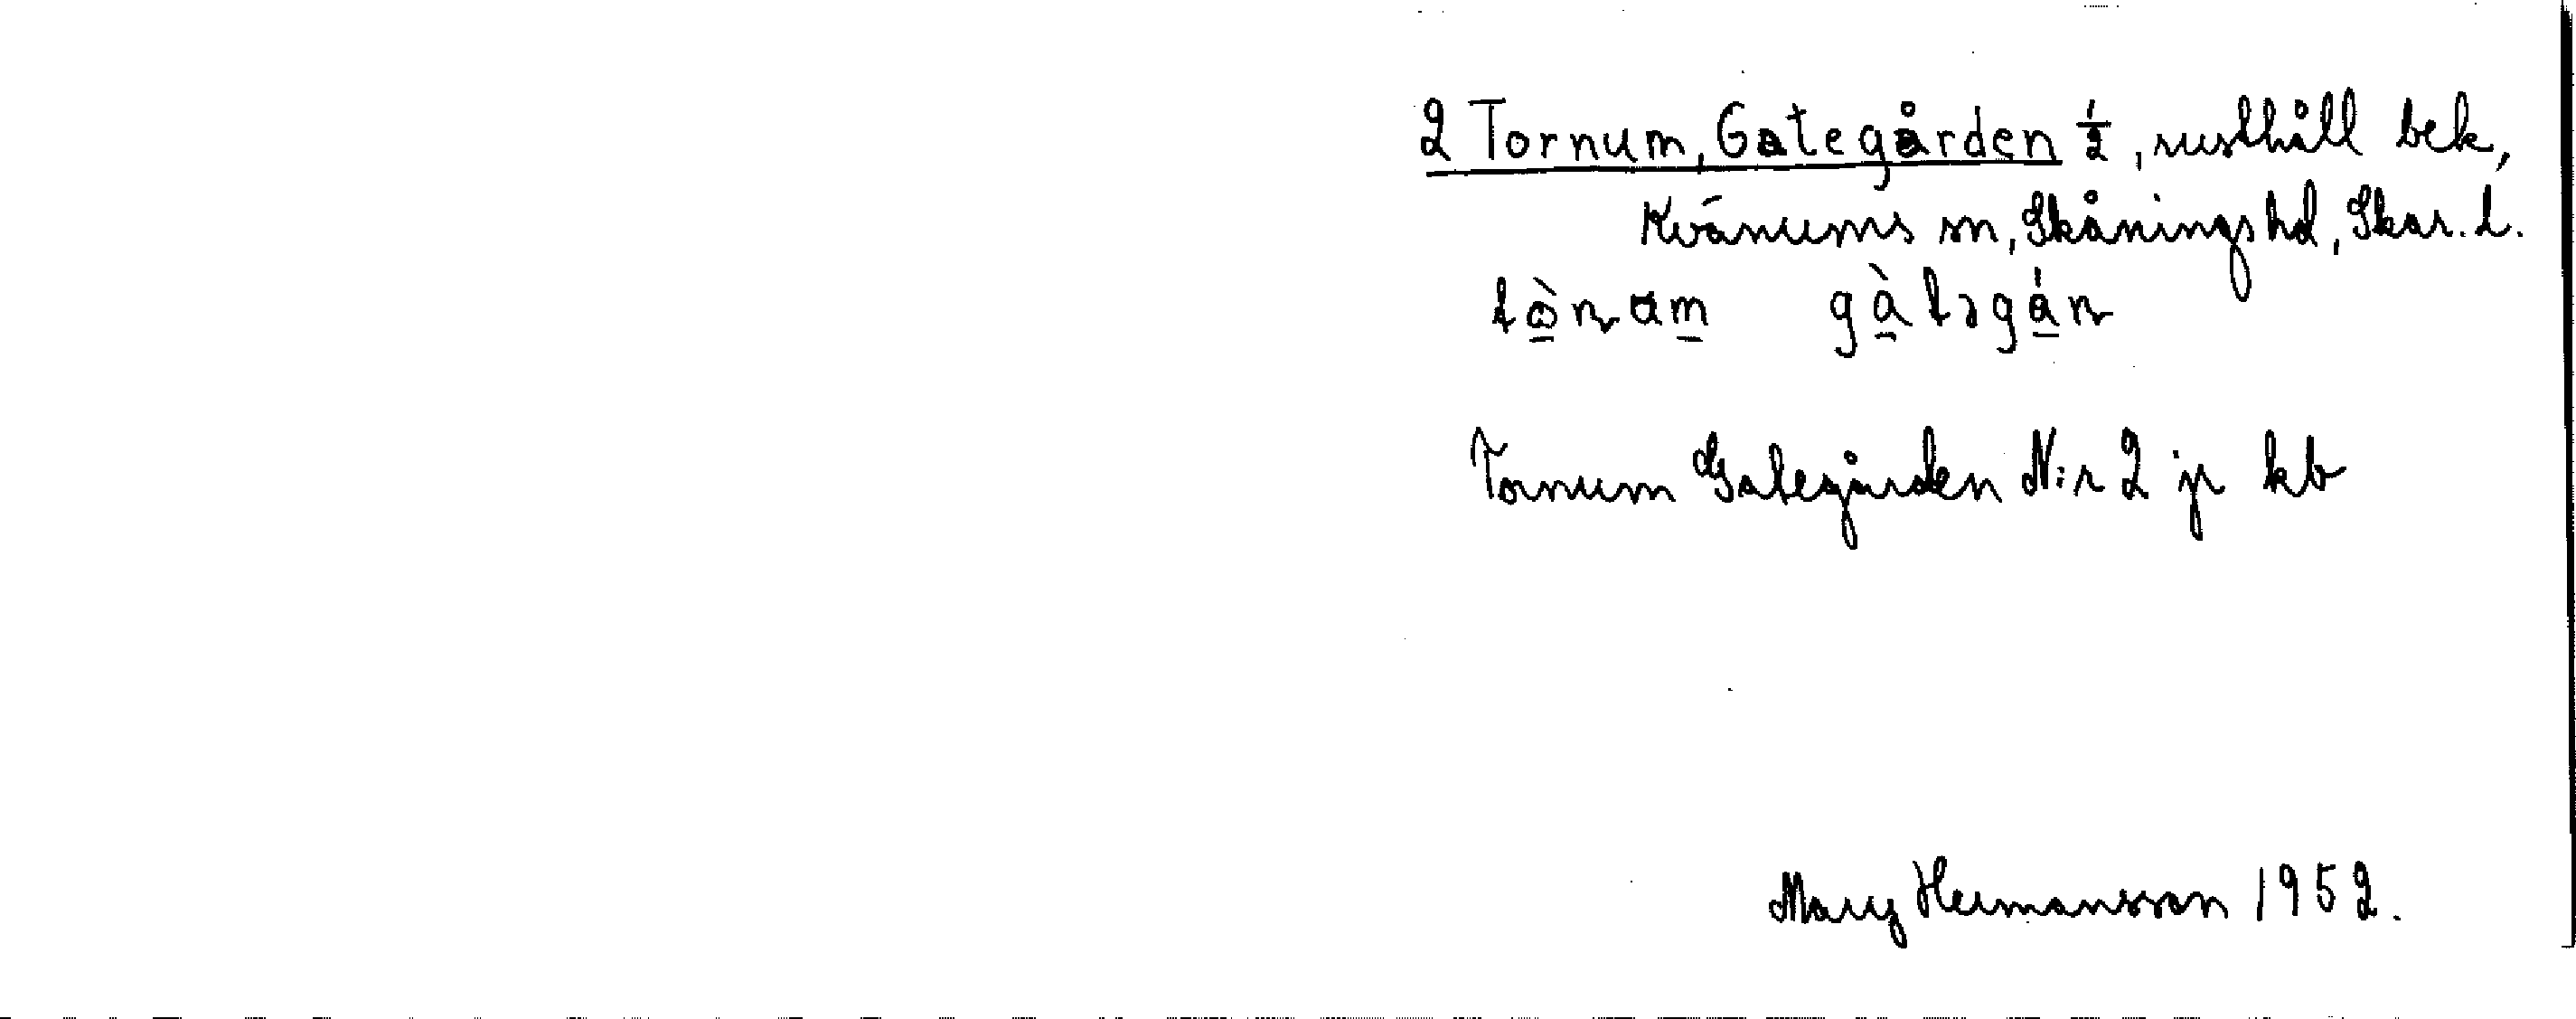 2 Tornum, Gategården ½, rusthåll bek,
Kvänums sn, Skånings hd, Skar. l.
tò̱nam̱ gà̱təgá̱n
Tornum Gategården N:r 2 jr kb
Mary Hermansson 1952.